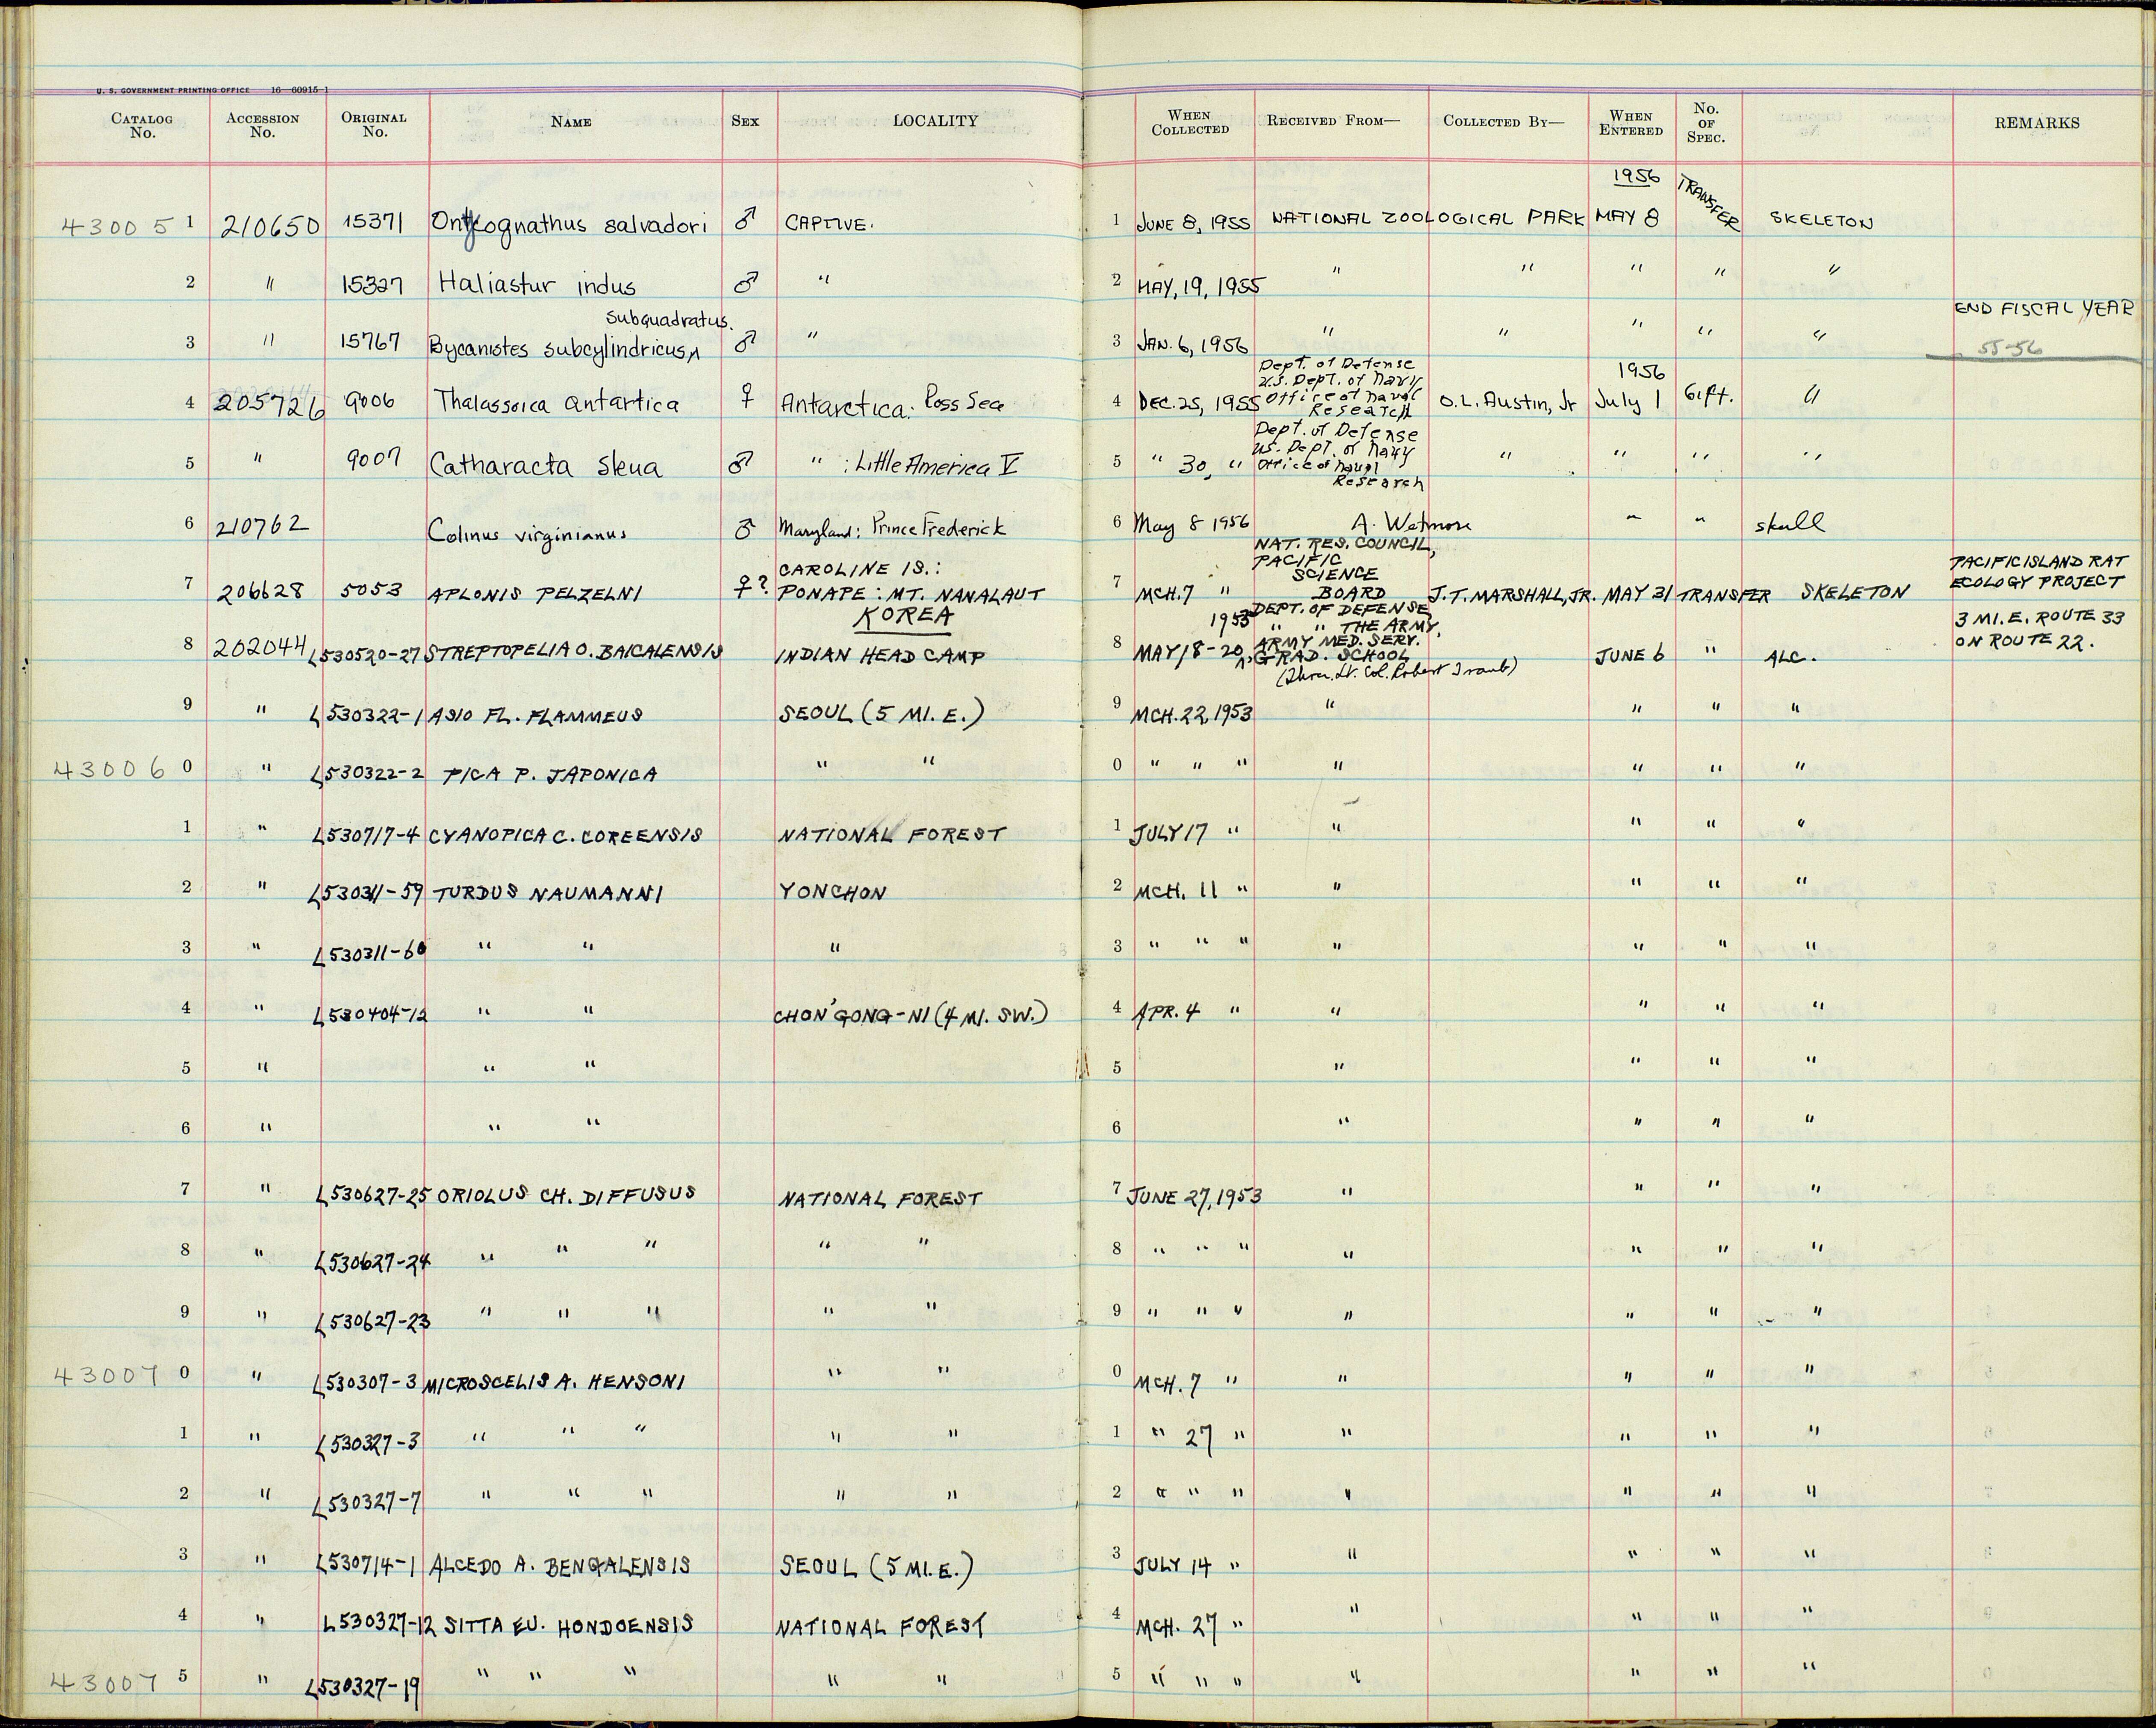 U. S. GOVERNMENT PRINTING OFFICE 16—60915-1
CATALOG No. ACCESSION No. ORIGINAL No. NAME SEX LOCALITY WHEN COLLECTED RECEIVED FROM— COLLECTED BY— WHEN ENTERED No. OF SPEC. REMARKS
43005 1 210650 15371 Onycognathus salvadori ♂ CAPTIVE. 1 JUNE 8, 1955 NATIONAL ZOOLOGICAL PARK 1956 MAY 8 TRANSFER SKELETON
2 " 15327 Haliastur indus ♂ " 2 MAY, 19, 1955 " " " " "
3 " 15767 Bycanistes subcylindricus subquadratus. ♂ " 3 JAN. 6, 1956 " " " " " END FISCAL YEAR 55-56
4 205726 9006 Thalassoica antartica ♀ Antarctica: Ross Sea 4 DEC. 25, 1955 Dept. of Defense U.S. Dept. of Navy Office of Naval Research O.L. Austin, Jr 1956 July 1 Gift. "
5 " 9007 Catharacta skua ♂ " : Little America V 5 " 30, " Dept. of Defense US. Dept. of Navy Office of Naval Research " " " "
6 210762 Colinus virginianus ♂ Maryland: Prince Frederick 6 May 8 1956 A. Wetmore " " skull
7 206628 5053 APLONIS PELZELNI ♀? CAROLINE IS.: PONAPE: MT. NANALAUT 7 MCH. 7 " NAT. RES. COUNCIL, PACIFIC SCIENCE BOARD J.T. MARSHALL, JR. MAY 31 TRANSFER SKELETON PACIFIC ISLAND RAT ECOLOGY PROJECT
KOREA
8 202044 L530520-27 STREPTOPELIA O. BAICALENSIS INDIAN HEAD CAMP 8 MAY 18-20, 1953 DEPT. OF DEFENSE " " THE ARMY, ARMY MED. SERV. GRAD. SCHOOL (Thru. Lt. Col. Robert Traub) JUNE 6 " ALC. 3 MI. E. ROUTE 33 ON ROUTE 22.
9 " L530322-1 ASIO FL. FLAMMEUS SEOUL (5 MI. E.) 9 MCH. 22, 1953 " " " "
43006 0 " L530322-2 PICA P. JAPONICA " " 0 " " " " " " "
1 " L530717-4 CYANOPICA C. COREENSIS NATIONAL FOREST 1 JULY 17 " " " " "
2 " L530311-59 TURDUS NAUMANNI YONCHON 2 MCH. 11 " " " " "
3 " L530311-60 " " " 3 " " " " " " "
4 " L530404-12 " " CHON'GONG-NI (4 MI. SW.) 4 APR. 4 " " " " "
5 " " " 5 " " " "
6 " " " 6 " " " "
7 " L530627-25 ORIOLUS CH. DIFFUSUS NATIONAL FOREST 7 JUNE 27, 1953 " " " "
8 " L530627-24 " " " " " 8 " " " " " " "
9 " L530627-23 " " " " " 9 " " " " " " "
43007 0 " L530307-3 MICROSCELIS A. HENSONI " " 0 MCH. 7 " " " " "
1 " L530327-3 " " " " " 1 " 27 " " " " "
2 " L530327-7 " " " " " 2 " " " " " " "
3 " L530714-1 ALCEDO A. BENGALENSIS SEOUL (5 MI. E.) 3 JULY 14 " " " " "
4 " L530327-12 SITTA EU. HONDOENSIS NATIONAL FOREST 4 MCH. 27 " " " " "
43007 5 " L530327-19 " " " " " 5 " " " " " " "